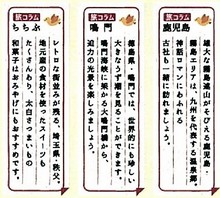 旅コラム
鹿児島
雄大な霧島連山がそびえる鹿児島・
霧島エリアは、九州を代表する温泉郷。
神話ロマンにあふれる
古社も一緒に訪れましょう。
旅コラム
鳴門
徳島県・鳴門では、世界的にも珍しい
大きなうず潮を見ることができます。
鳴門海峡に架かる大鳴門橋から、
迫力の光景を楽しみましょう。
旅コラム
ちちぶ
レトロな街並みが残る、埼玉県・秩父。
地元産の食材を使ったスイーツも
たくさんあり、太白さつまいもの
和菓子はおみやげにもおすすめです。